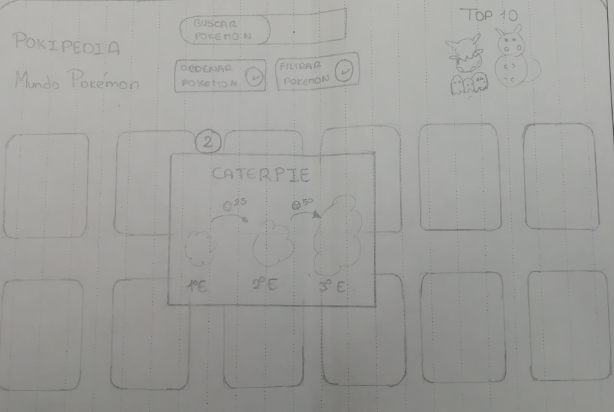 POKIPEDIA
Mundo Pokémon
BUSCAR
POKEMON
ORDENAR
POKEMON
FILTRAR
POKEMON
TOP 10
2
CATERPIE
25
50
1°E
2°E
3°E